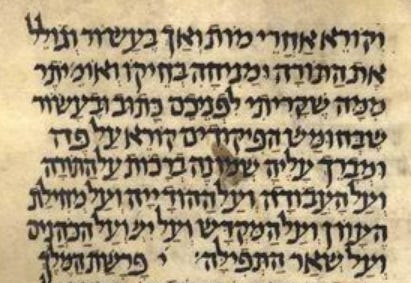 וקורא אחרי מות ואך בעשור וגולל
את התורה ומניחה בחיקו ואומ' יתי'
ממה שקריתי לפניכם כתוב ובעשור
שבחומש הפיקודים קורא על פה
ומברך עליה שמונה ברכות על התורה
ועל העבודה ועל ההודייה ועל מחילת
העוון ועל המקדש ועל יש' ועל הכהנים
ועל שאר התפילה י פרשת המלך